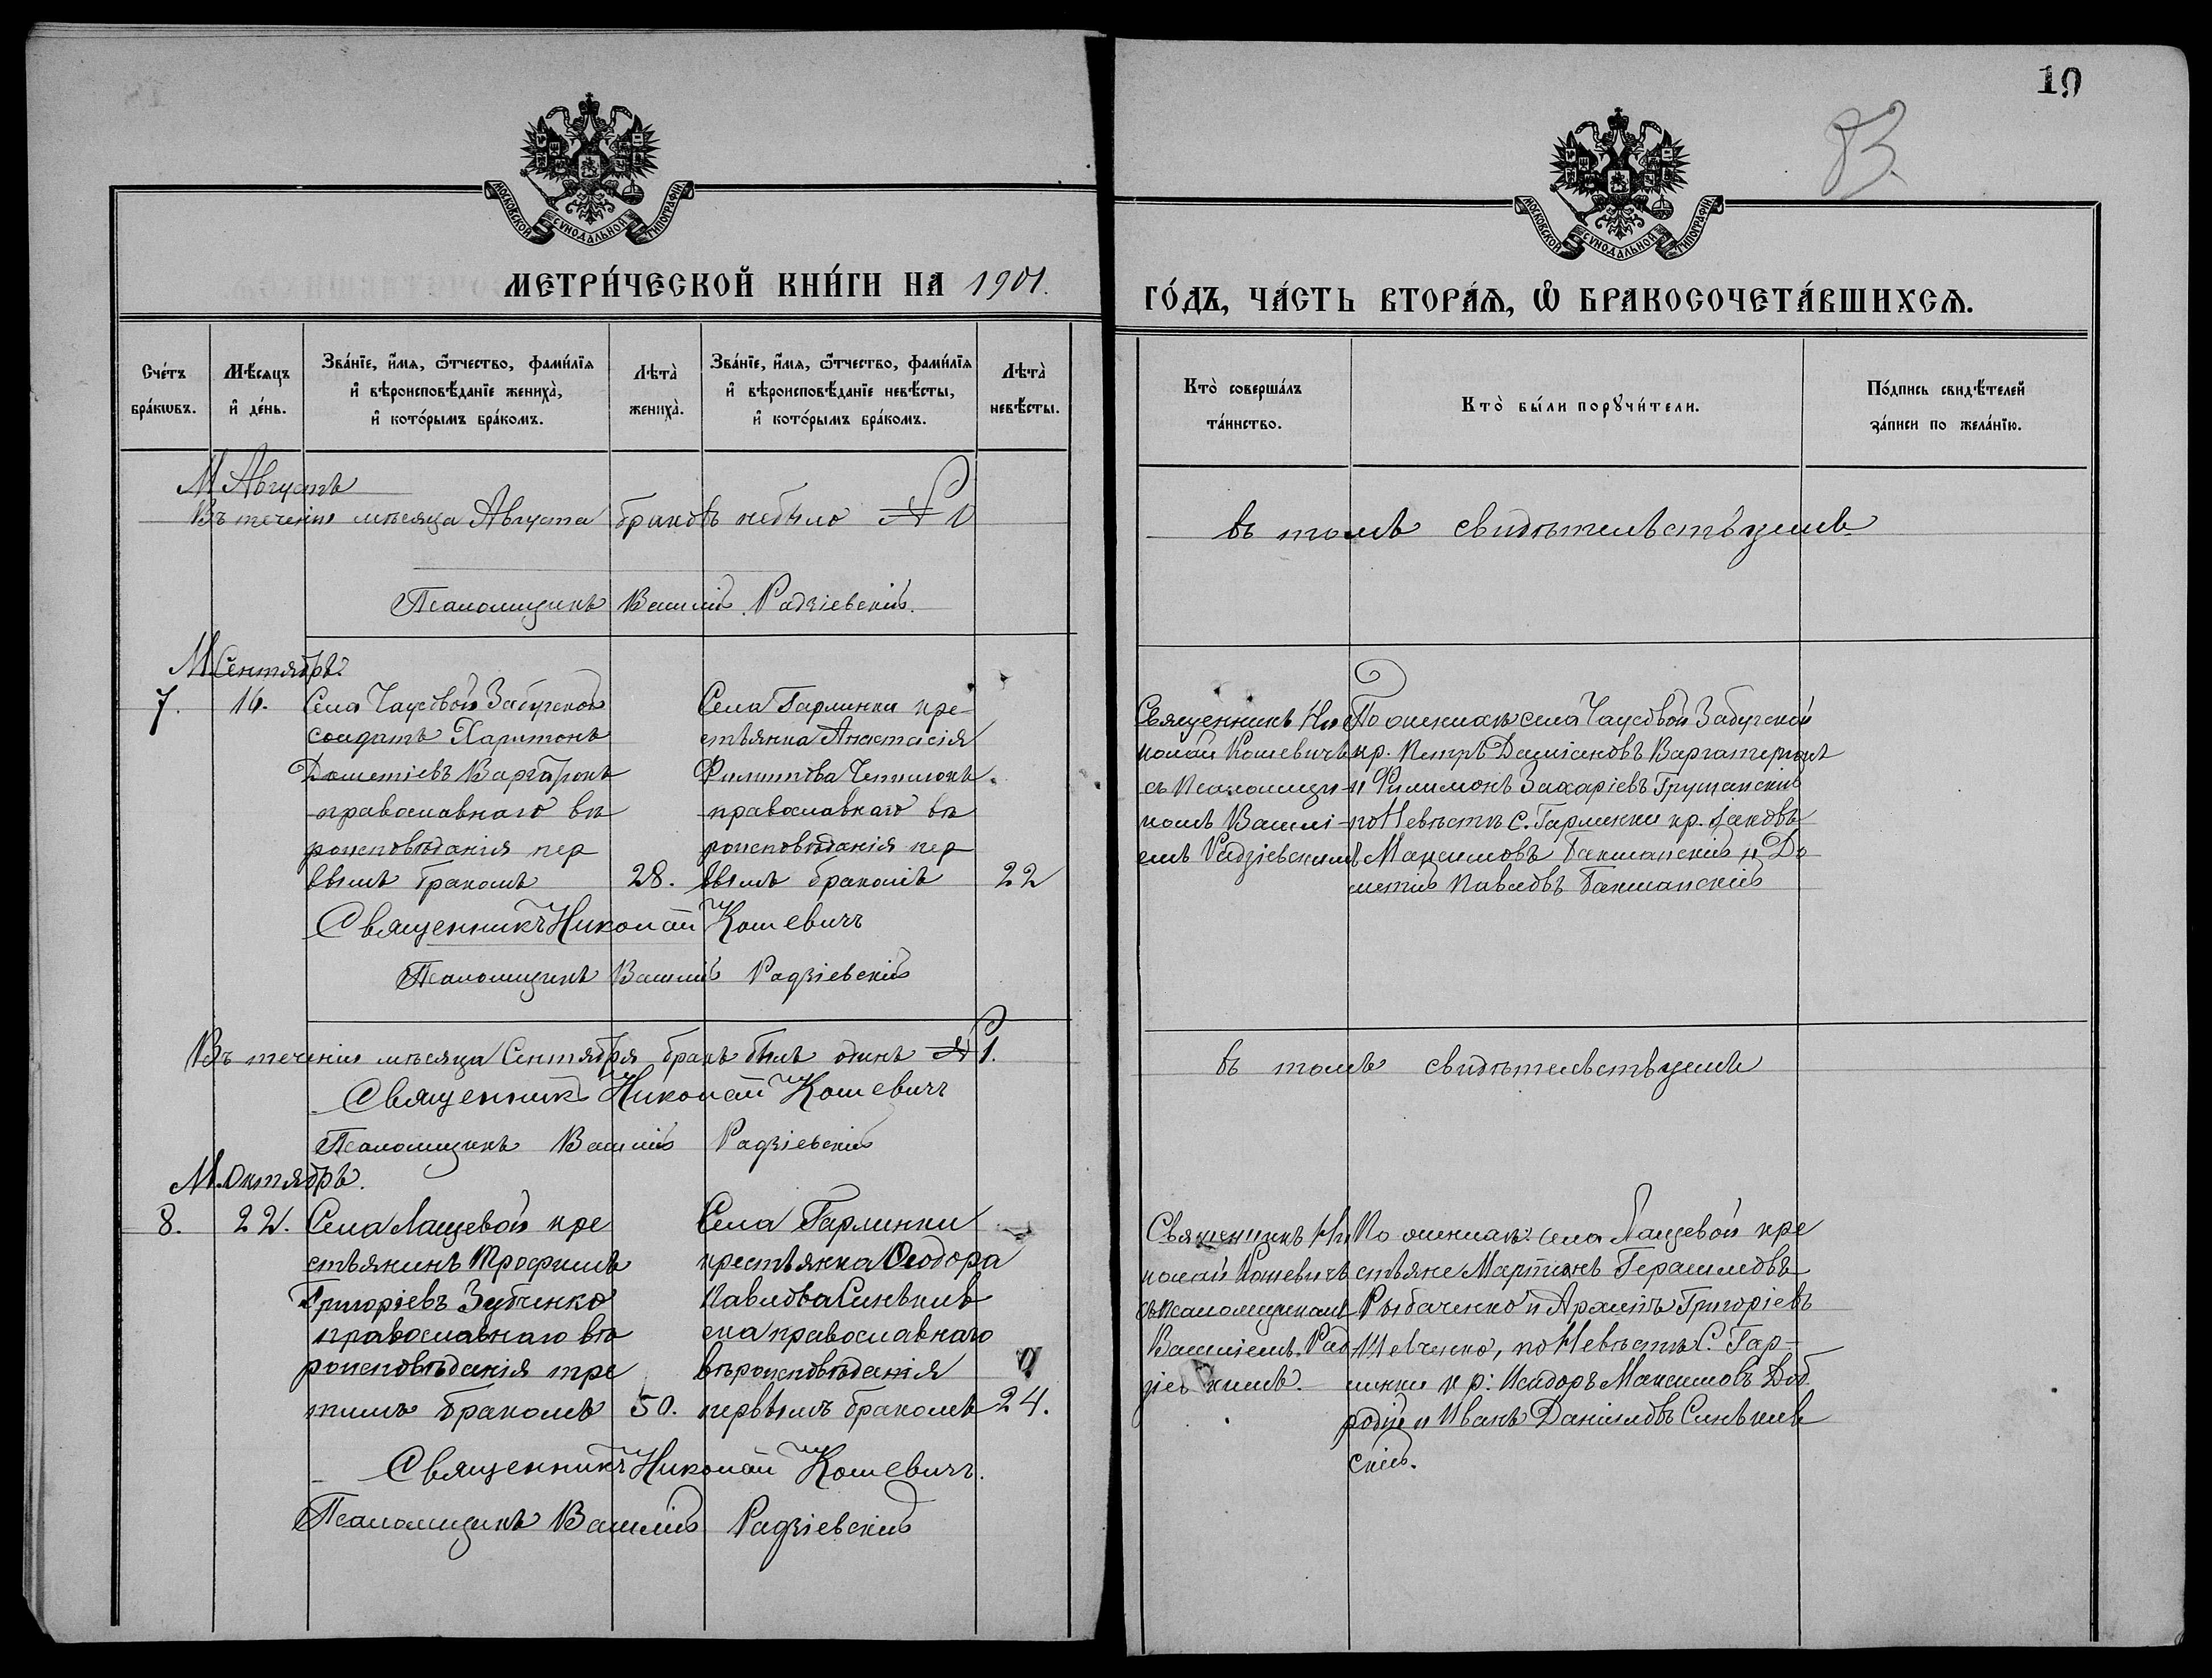 19
83.
МОСКОВСКОЙ СѴНОДАЛЬНОЙ ТИПОГРАФІИ
МОСКОВСКОЙ СѴНОДАЛЬНОЙ ТИПОГРАФІИ
МЕТРИ́ЧЕСКОЙ КНИ́ГИ НА 1901.
ГО́ДЪ, ЧА́СТЬ ВТОРА́Ѧ, Ѽ БРАКОСОЧЕТА́ВШИХСѦ.
Сче́тъ бра́кѡвъ.
Мѣ́сѧцъ и҆ де́нь.
Зва́нїе, и҆́мѧ, ѻ҆́тчество, фами́лїѧ
и҆ вѣроисповѣ́данїе жениха̀,
и҆ кото́рымъ бра́комъ.
Лѣта̀ жениха̀.
Зва́нїе, и҆́мѧ, ѻ҆́тчество, фами́лїѧ
и҆ вѣроисповѣ́данїе невѣ́сты,
и҆ кото́рымъ бра́комъ.
Лѣта̀ невѣ́сты.
Кто̀ соверша́лъ та́инство.
Кто̀ бы́ли порꙋчи́тели.
По́дпись свидѣ́телей
за́писи по жела́нїю.
М Августъ
Въ теченіи мѣсяца Августа браковъ небыло № 0
въ томъ свидѣтельствуемъ
Псаломщикъ Василій Радзіевскій.
М Сентябрь.
7.
16.
Села Чаусовой Забугской
солдатъ Харитонъ
Дометіевъ
православнаго вѣ
роисповѣданія пер
вымъ бракомъ
28.
Села Гарлинки кре-
стьянка Анастасія
Филиппова
православнаго вѣ
роисповѣданія пер
вымъ бракомъ
22
Священникъ Ни
колай Кошевичъ
съ Псаломщи-
комъ Васілі-
емъ Радзіевскимъ
По женихѣ села Чаусовой Забугской
кр. Петръ Даміановъ
и Филимонъ Захаріевъ
по Невѣстѣ С. Гарлинки кр. Іаковъ
Максимовъ Бакшанскій и До
метій Павловъ Бакшанскій
Священникъ Николай Кошевичъ
Псаломщикъ Василій Радзіевскій
Въ теченіи мѣсяца Сентября бракъ былъ одинъ № 1.
въ томъ свидѣтельствуемъ
Священникъ Николай Кошевичъ
Псаломщикъ Василій Радзіевскій
М. Октябрь.
8.
22.
Села Лащевой кре
стьянинъ Трофимъ
Григоріевъ Зубченко
православнаго вѣ
роисповѣданія тре
тимъ бракомъ
50.
Села Гарлинки
крестьянка Ѳеодора
Павлова Синькев
ска православнаго
вѣроисповѣданія
первымъ бракомъ
24.
Священникъ Ни
колай Кошевичъ
съ псаломщикомъ
Василіемъ Рад
зіевскимъ.
По женихѣ: села Лащевой кре
стьяне Мартинъ Герасимовъ
Рыбаченко и Архипъ Григоріевъ
Шевченко, по Невѣстѣ С. Гар-
линки кр: Исидоръ Максимовъ Доб
родій и Иванъ Даніиловъ Синькев
скій.
Священникъ Николай Кошевичъ.
Псаломщикъ Василій Радзіевскій